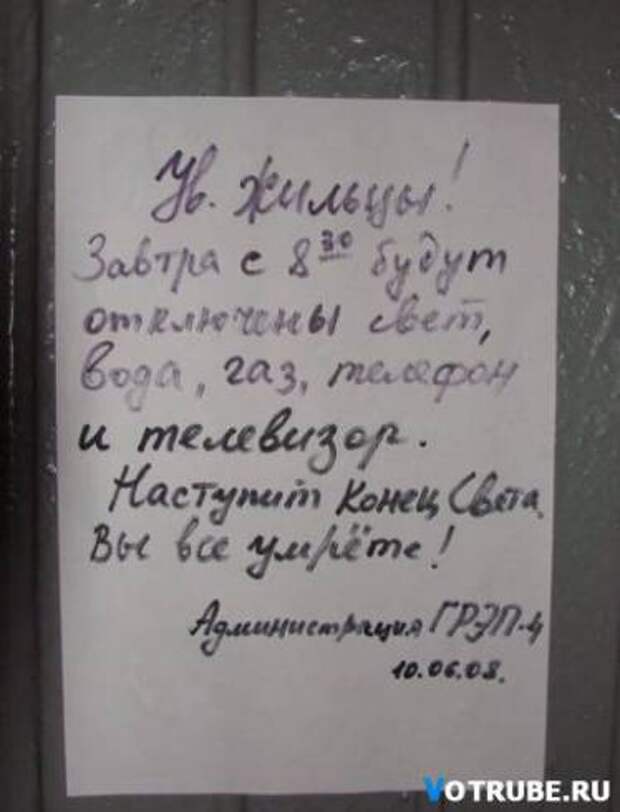 Ув. Жильцы!
Завтра с 8 30 будут
отключены свет,
вода, газ, телефон
и телевизор.
Наступит Конец Света.
Вы все умрёте!
Администрация ГРЭП-4
10.06.08.
VOTRUBE.RU